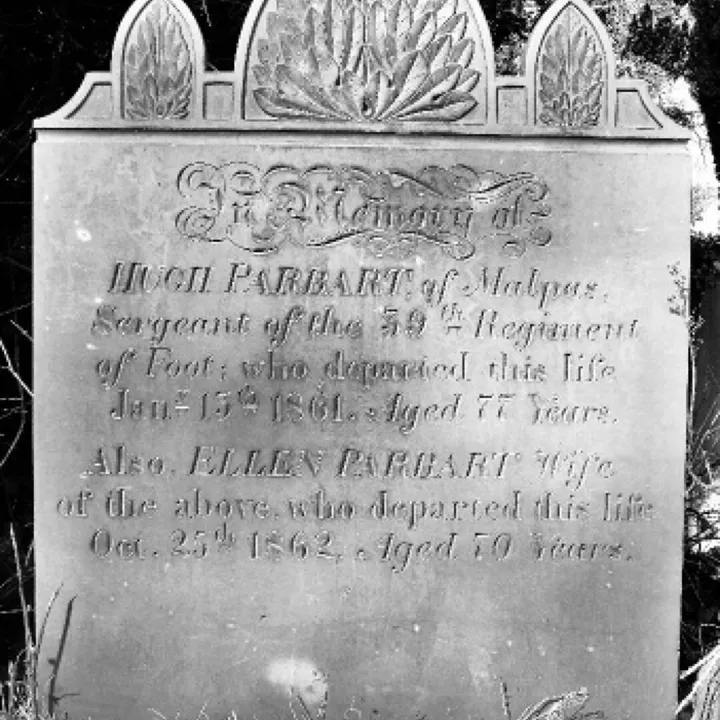 In Memory of
HUGH PARBART, of Malpas,
Sergeant of the 39th Regiment
of Foot; who departed this life
Jany 13th 1861. Aged 77 Years.
Also, ELLEN PARBART Wife
of the above, who departed this life
Oct. 25th 1862, Aged 70 Years.